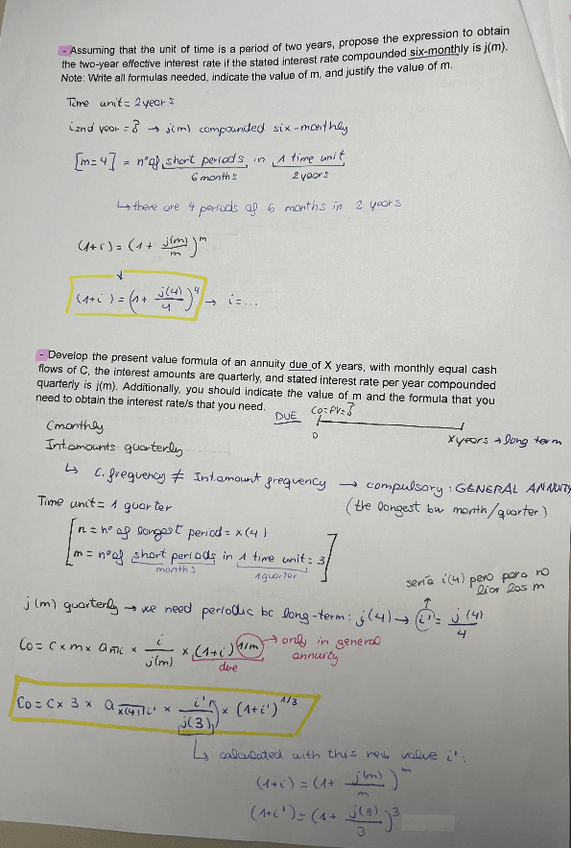 - Assuming that the unit of time is a period of two years, propose the expression to obtain
the two-year effective interest rate if the stated interest rate compounded six-monthly is j(m).
Note: Write all formulas needed, indicate the value of m, and justify the value of m.
Time unit = 2 years
i 2nd year = ? → j(m) compounded six-monthly
[m=4] = nº of short periods in 1 time unit
6 months 2 years
↳ there are 4 periods of 6 months in 2 years
(1+i) = (1 + j(m)/m)^m
↓
(1+i) = (1 + j(4)/4)^4 → i = ...
- Develop the present value formula of an annuity due of X years, with monthly equal cash
flows of C, the interest amounts are quarterly, and stated interest rate per year compounded
quarterly is j(m). Additionally, you should indicate the value of m and the formula that you
need to obtain the interest rate/s that you need.
DUE C0=PV=?
0 X years → long term
C monthly
Int. amounts quarterly
↳ C. frequency ≠ Int. amount frequency → compulsory: GENERAL ANNUITY
(the longest bw month/quarter)
Time unit = 1 quarter
n = nº of longest period = x(4)
m = nº of short periods in 1 time unit = 3
months 1 quarter
sería i(4) pero para no
liar los m
j(m) quarterly → we need periodic bc long-term: j(4) → i' = j(4)/4
C0 = C x m x a n̅ i x i/j(m) x (1+i)^1/m → only in general
annuity
due
C0 = C x 3 x a x(4) i' x i'/j(3) x (1+i')^1/3
↳ calculated with this new value i':
(1+i) = (1 + j(m)/m)^m
(1+i') = (1 + j(3)/3)^3